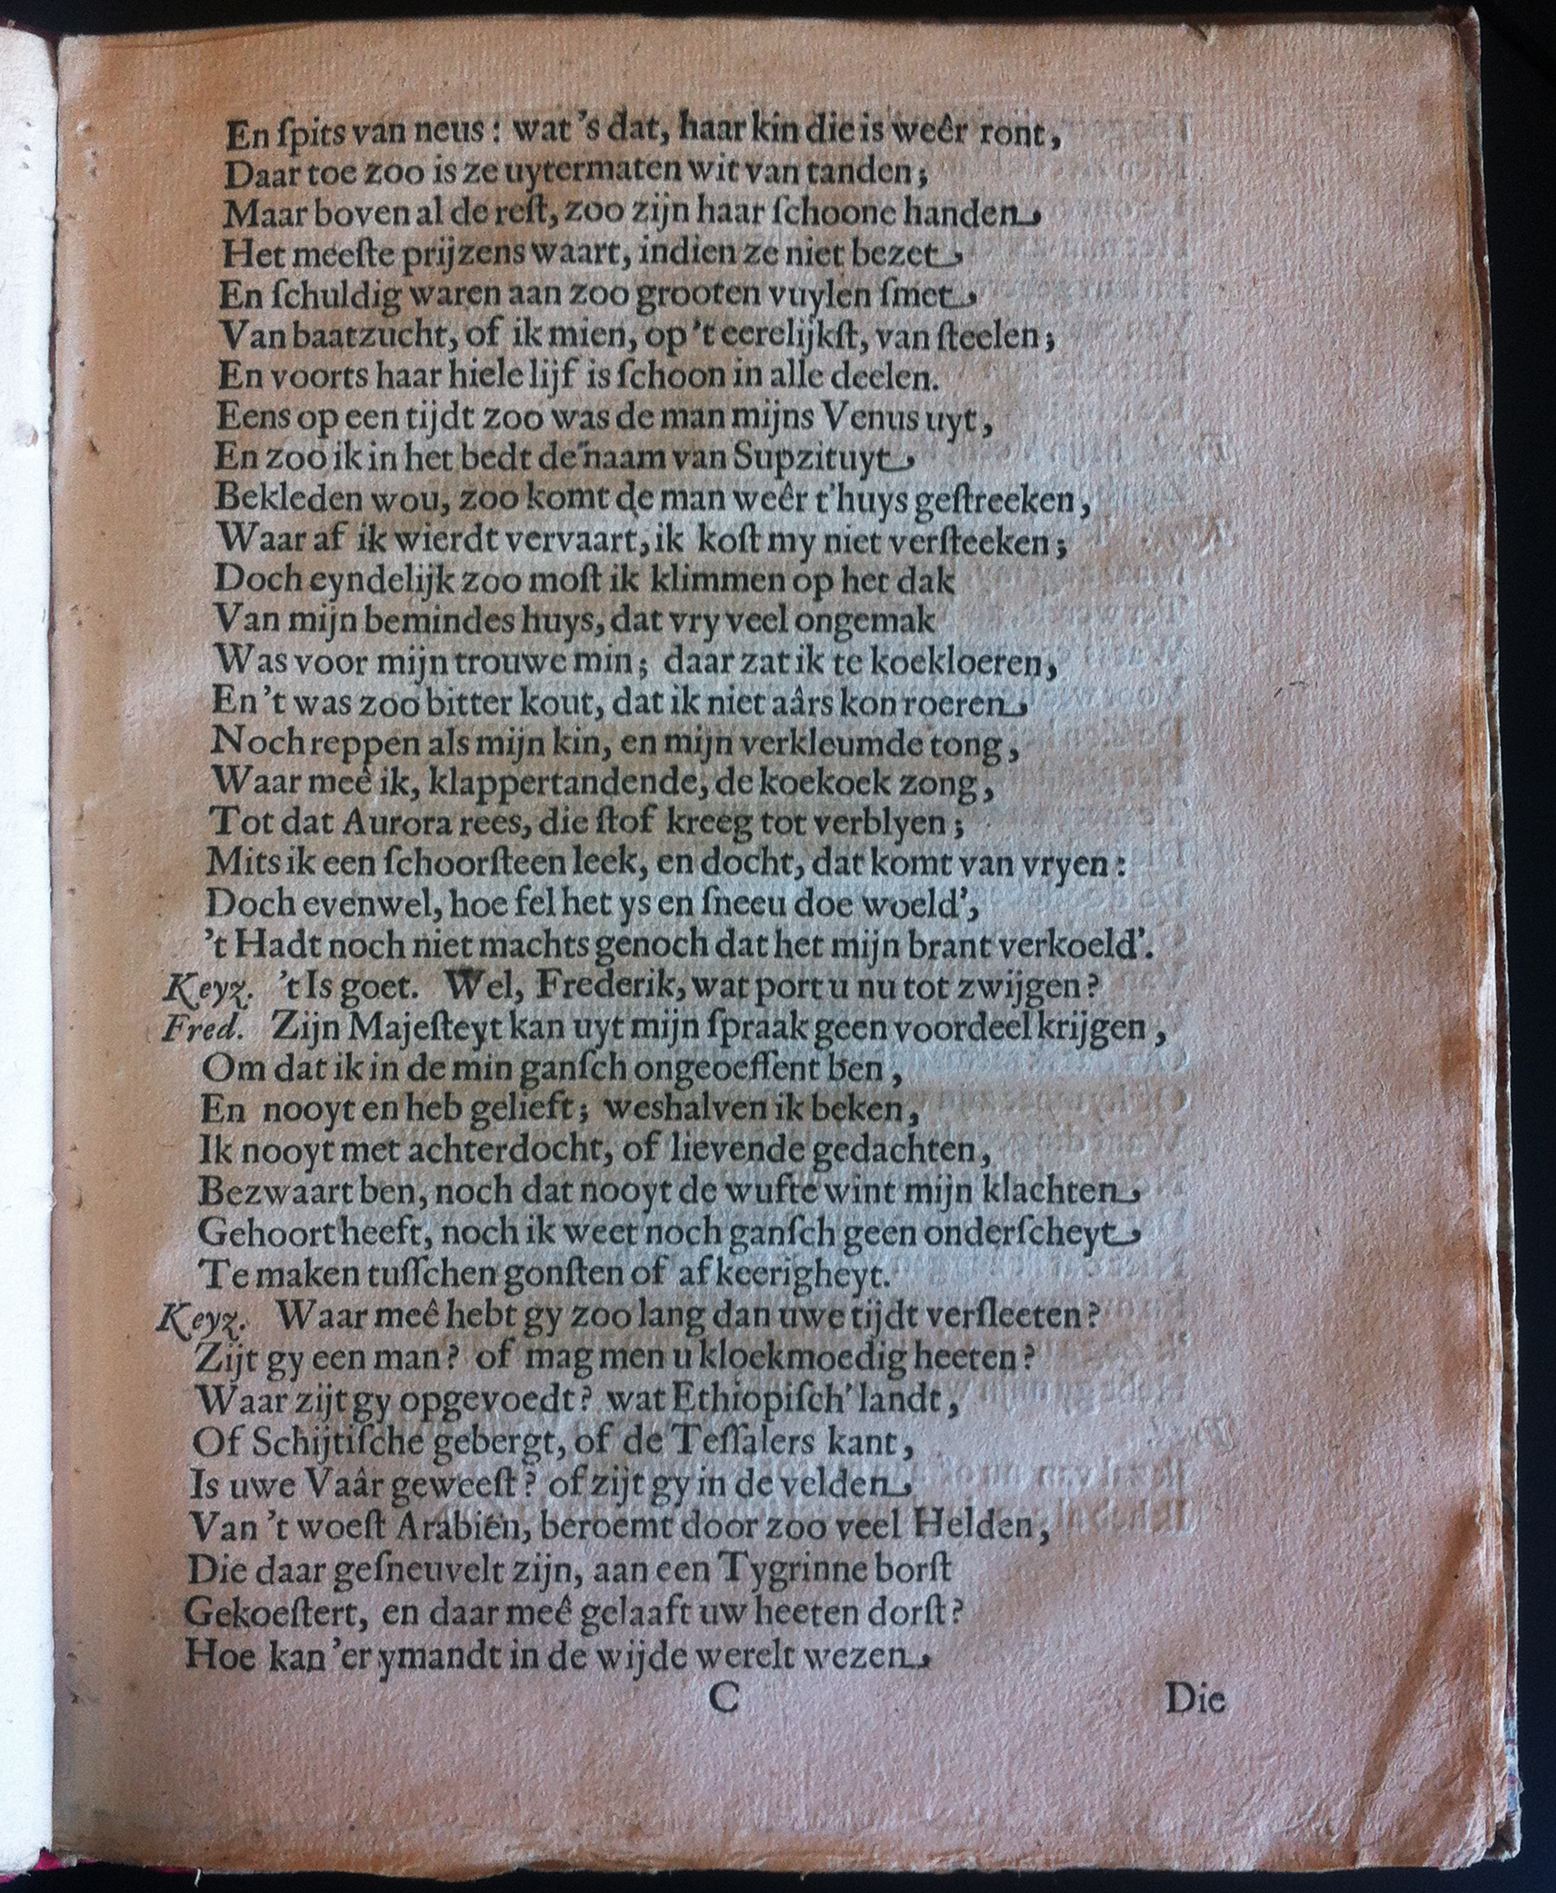 En ſpits van neus: wat 's dat, haar kin die is weêr ront,
Daar toe zoo is ze uytermaten wit van tanden;
Maar boven al de reſt, zoo zijn haar ſchoone handen
Het meeſte prijzens waart, indien ze niet bezet
En ſchuldig waren aan zoo grooten vuylen ſmet
Van baatzucht, of ik mien, op 't eerelijkſt, van ſteelen;
En voorts haar hiele lijf is ſchoon in alle deelen.
Eens op een tijdt zoo was de man mijns Venus uyt,
En zoo ik in het bedt de naam van Supzituyt
Bekleden wou, zoo komt de man weêr t'huys geſtreeken,
Waar af ik wierdt vervaart, ik koſt my niet verſteeken;
Doch eyndelijk zoo moſt ik klimmen op het dak
Van mijn bemindes huys, dat vry veel ongemak
Was voor mijn trouwe min; daar zat ik te koekloeren,
En 't was zoo bitter kout, dat ik niet aârs kon roeren
Noch reppen als mijn kin, en mijn verkleumde tong,
Waar meê ik, klappertandende, de koekoek zong,
Tot dat Aurora rees, die ſtof kreeg tot verblyen;
Mits ik een ſchoorſteen leek, en docht, dat komt van vryen:
Doch evenwel, hoe fel het ys en ſneeu doe woeld',
't Hadt noch niet machts genoch dat het mijn brant verkoeld'.
Keyz. 't Is goet. Wel, Frederik, wat port u nu tot zwijgen?
Fred. Zijn Majeſteyt kan uyt mijn ſpraak geen voordeel krijgen,
Om dat ik in de min ganſch ongeoeffent ben,
En nooyt en heb gelieft; weshalven ik beken,
Ik nooyt met achterdocht, of lievende gedachten,
Bezwaart ben, noch dat nooyt de wufte wint mijn klachten
Gehoort heeft, noch ik weet noch ganſch geen onderſcheyt
Te maken tuſſchen gonſten of afkeerigheyt.
Keyz. Waar meê hebt gy zoo lang dan uwe tijdt verſleeten?
Zijt gy een man? of mag men u kloekmoedig heeten?
Waar zijt gy opgevoedt? wat Ethiopiſch' landt,
Of Schijtiſche gebergt, of de Teſſalers kant,
Is uwe Vaâr geweeſt? of zijt gy in de velden
Van 't woeſt Arabiën, beroemt door zoo veel Helden,
Die daar geſneuvelt zijn, aan een Tygrinne borſt
Gekoeſtert, en daar meê gelaaft uw heeten dorſt?
Hoe kan 'er ymandt in de wijde werelt wezen
C Die